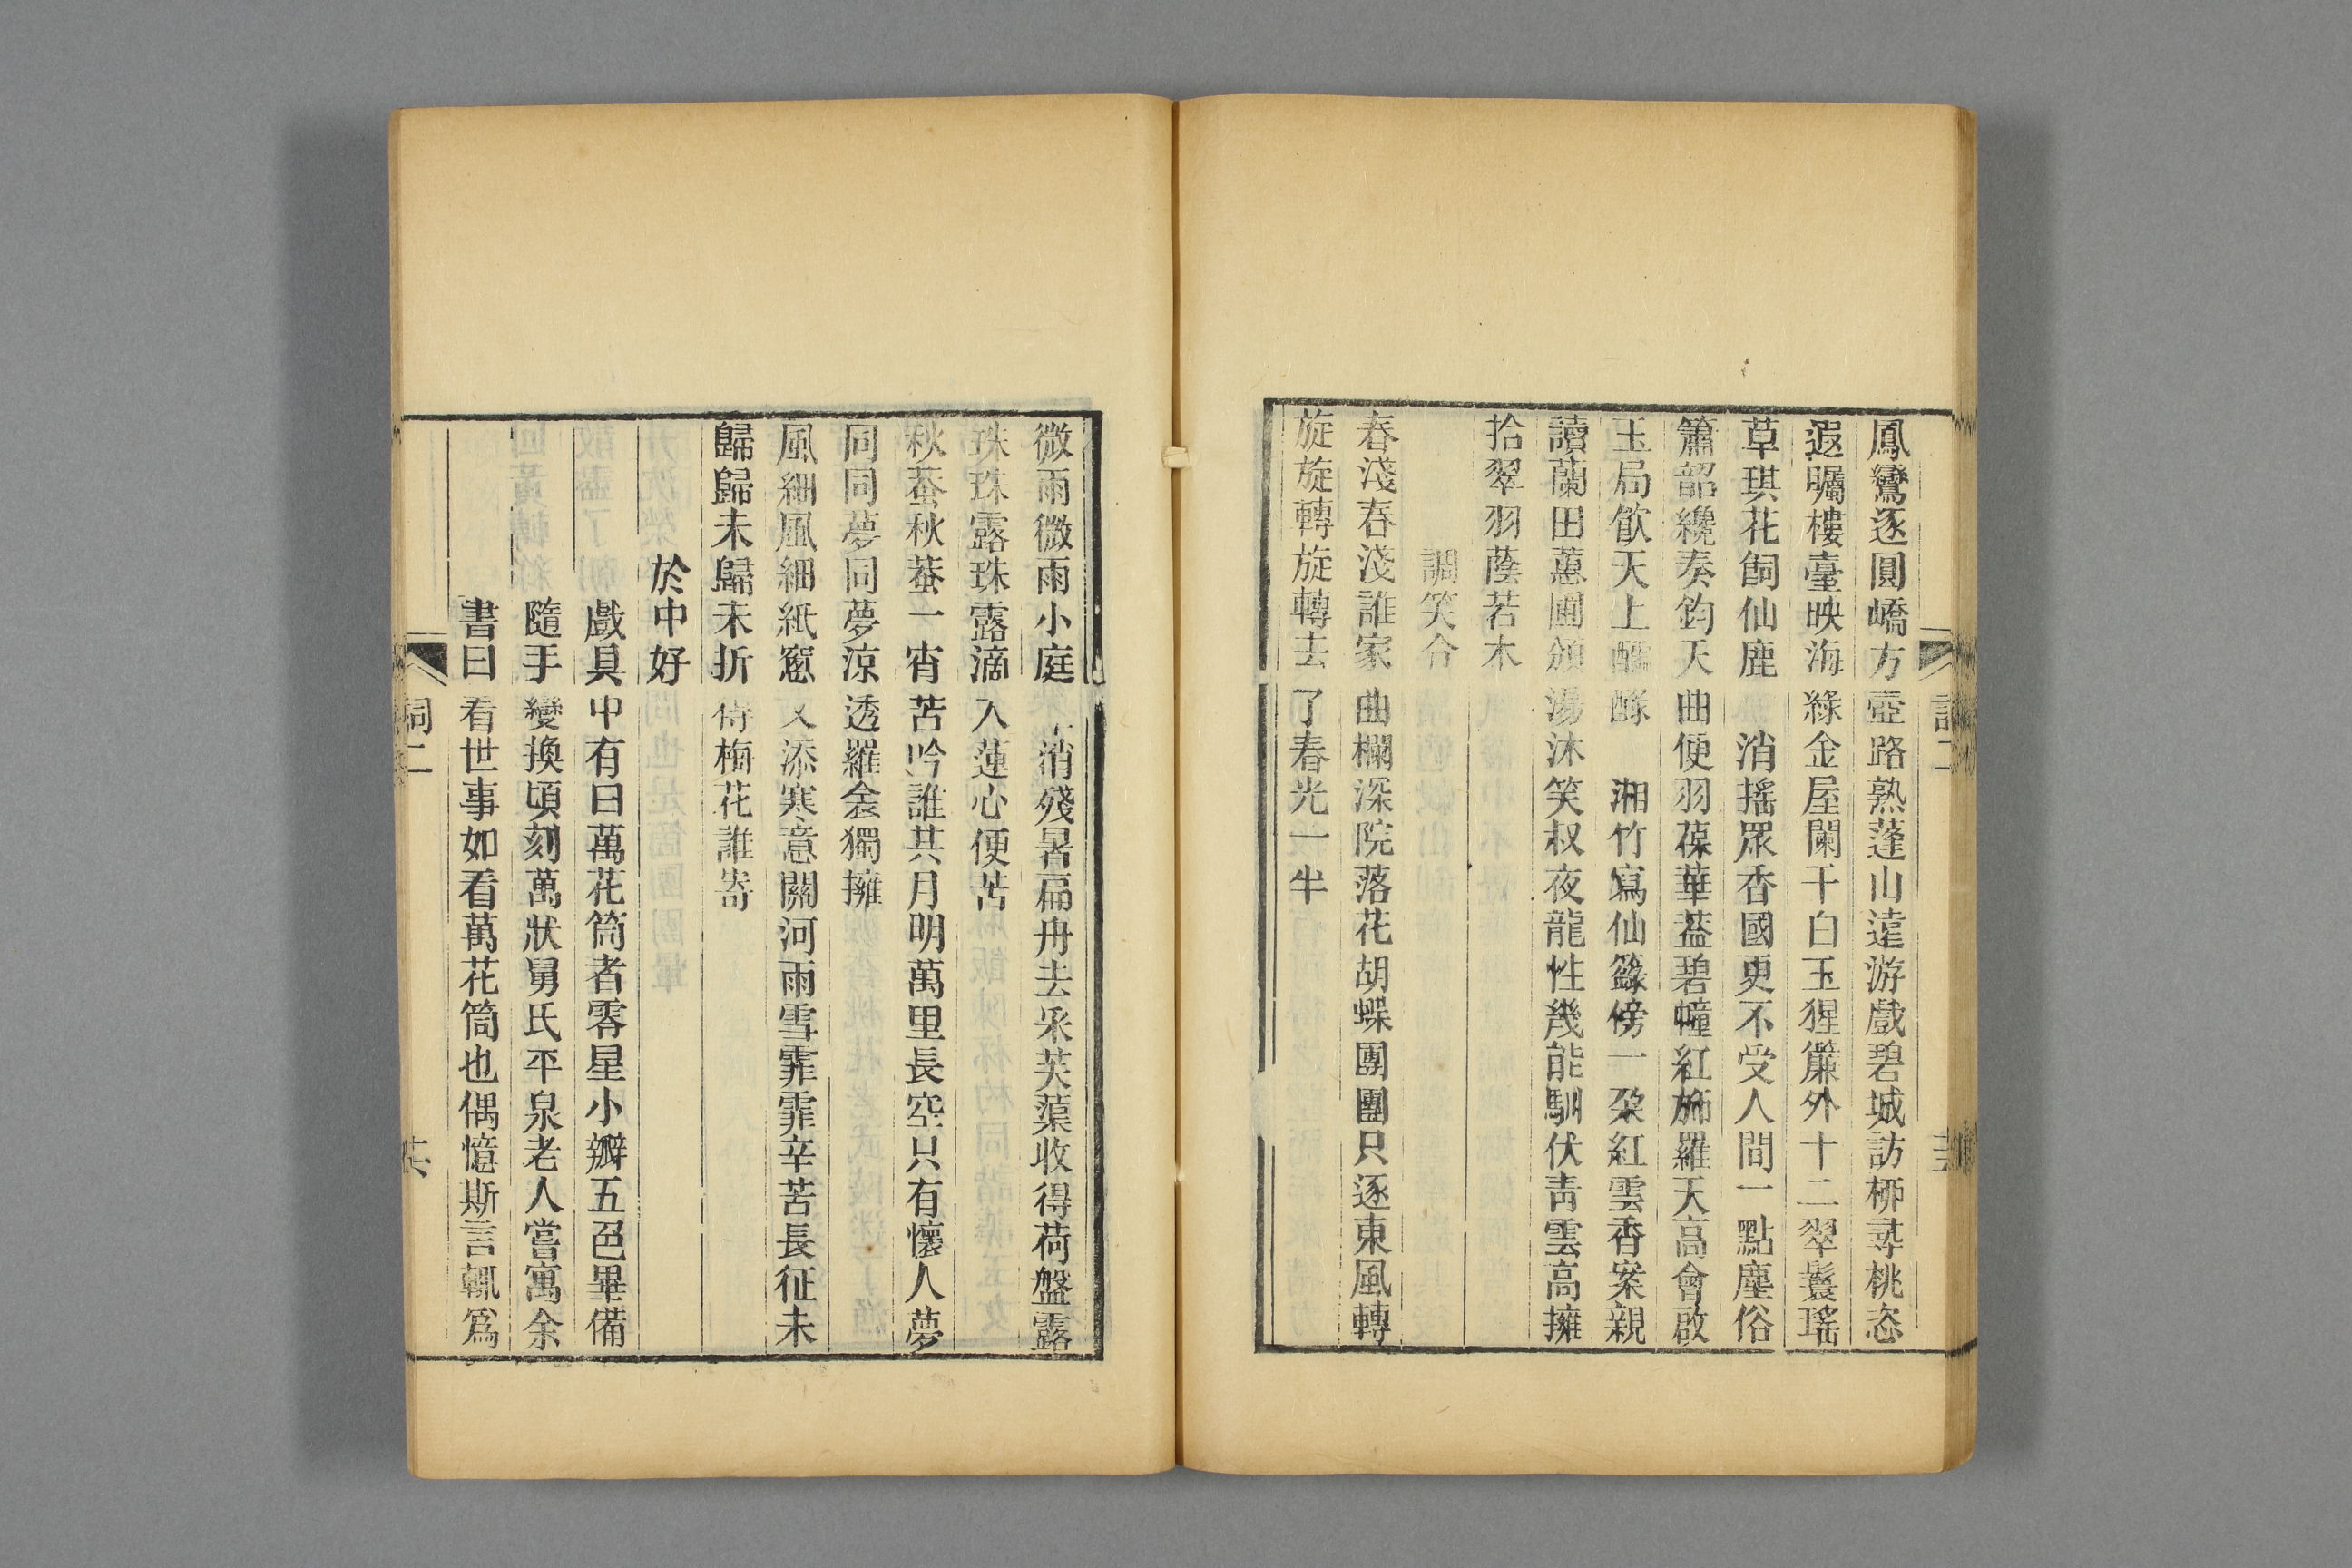 鳳鸞逐圓嶠方壺路熟蓬山遠游戲碧城訪栁尋桃恣
遐矚樓臺映海綠金屋闌干白玉猩簾外十二翠鬟瑤
草琪花飼仙鹿　消搖眾香國更不受人間一點塵俗
簫韶纔奏鈞天曲便羽葆華葢碧幢紅斾羅天高會啟
玉局飮天上醽醁　湘竹寫仙籙傍一朶紅雲香案親
讀蘭田蕙圃頒湯沐笑叔夜龍性幾能馴伏靑雲高擁
拾翠羽蔭若木
調笑令
春淺春淺誰家曲欄深院落花胡蝶團團只逐東風轉
旋旋轉旋轉去了春光一半
微雨微雨小庭消殘暑扁舟去采芙蕖收得荷盤露
珠珠露珠露滴入蓮心便苦
秋蛬秋蛬一宵苦吟誰共月明萬里長空只有懷人夢
同同夢同夢涼透羅衾獨擁
風細風細紙窻又添寒意關河雨雪霏霏辛苦長征未
歸歸未歸未折待梅花誰寄
於中好
戲具中有曰萬花筒者零星小瓣五色畢備
隨手變換頃刻萬狀舅氏平泉老人嘗寓余
書曰看世事如看萬花筒也偶憶斯言輒爲
詞二